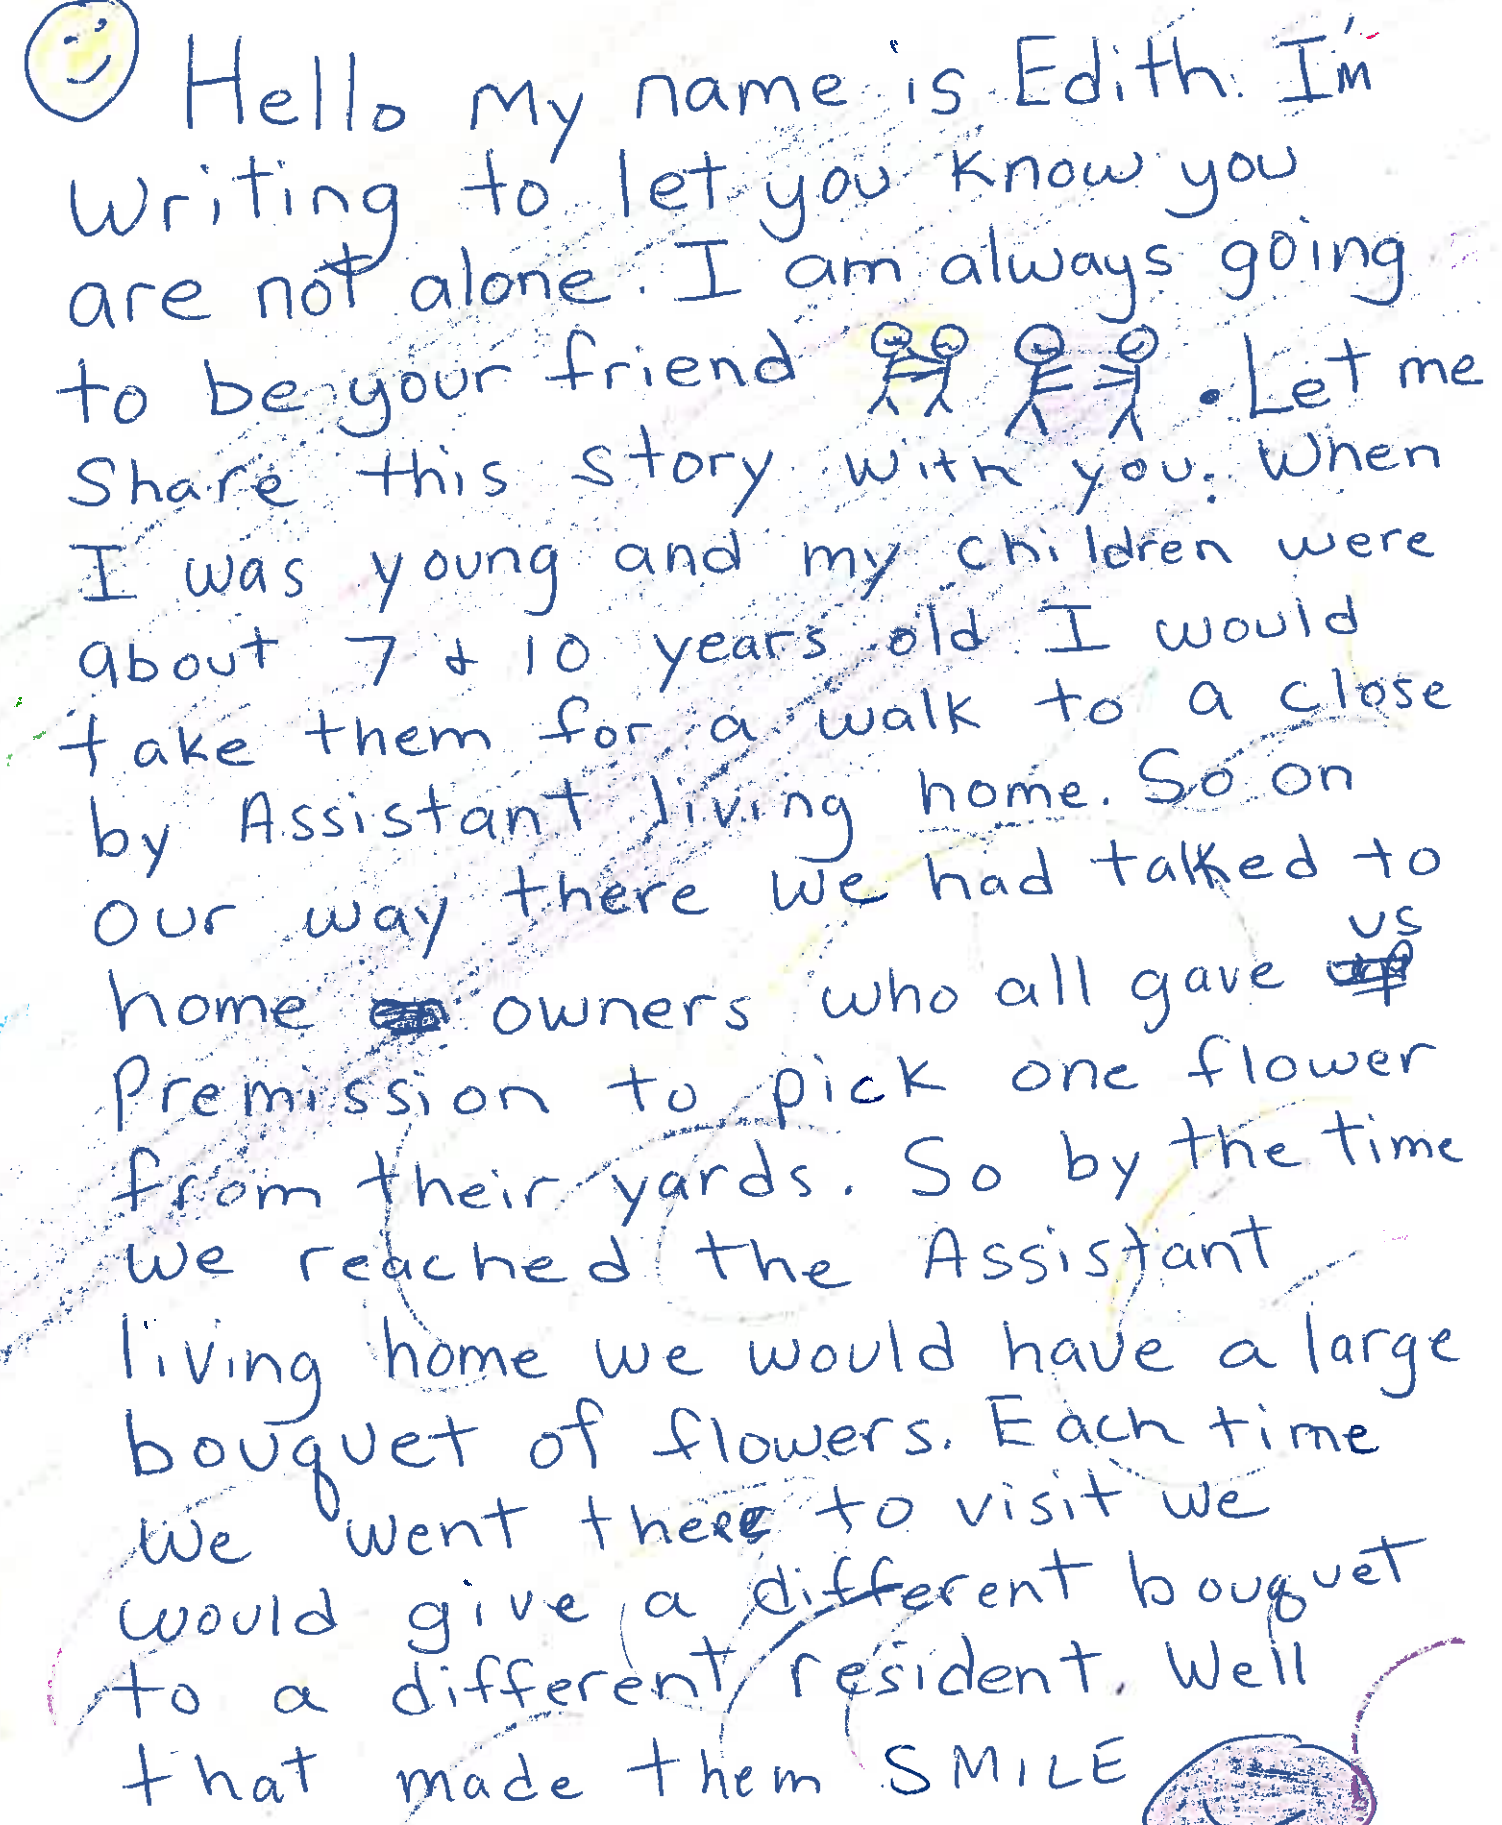 Hello My name is Edith. I'm
Writing to let you know you
are not alone. I am always going
to be your friend . Let me
Share this story with you. When
I was young and my children were
about 7 & 10 years old I would
take them for a walk to a close
by Assistant living home. So on
our way there we had talked to
us
home owners who all gave
Premission to pick one flower
from their yards. So by the time
we reached the Assistant
living home we would have a large
bouquet of flowers. Each time
we went there to visit we
would give a different bouquet
to a different resident. Well
that made them SMILE